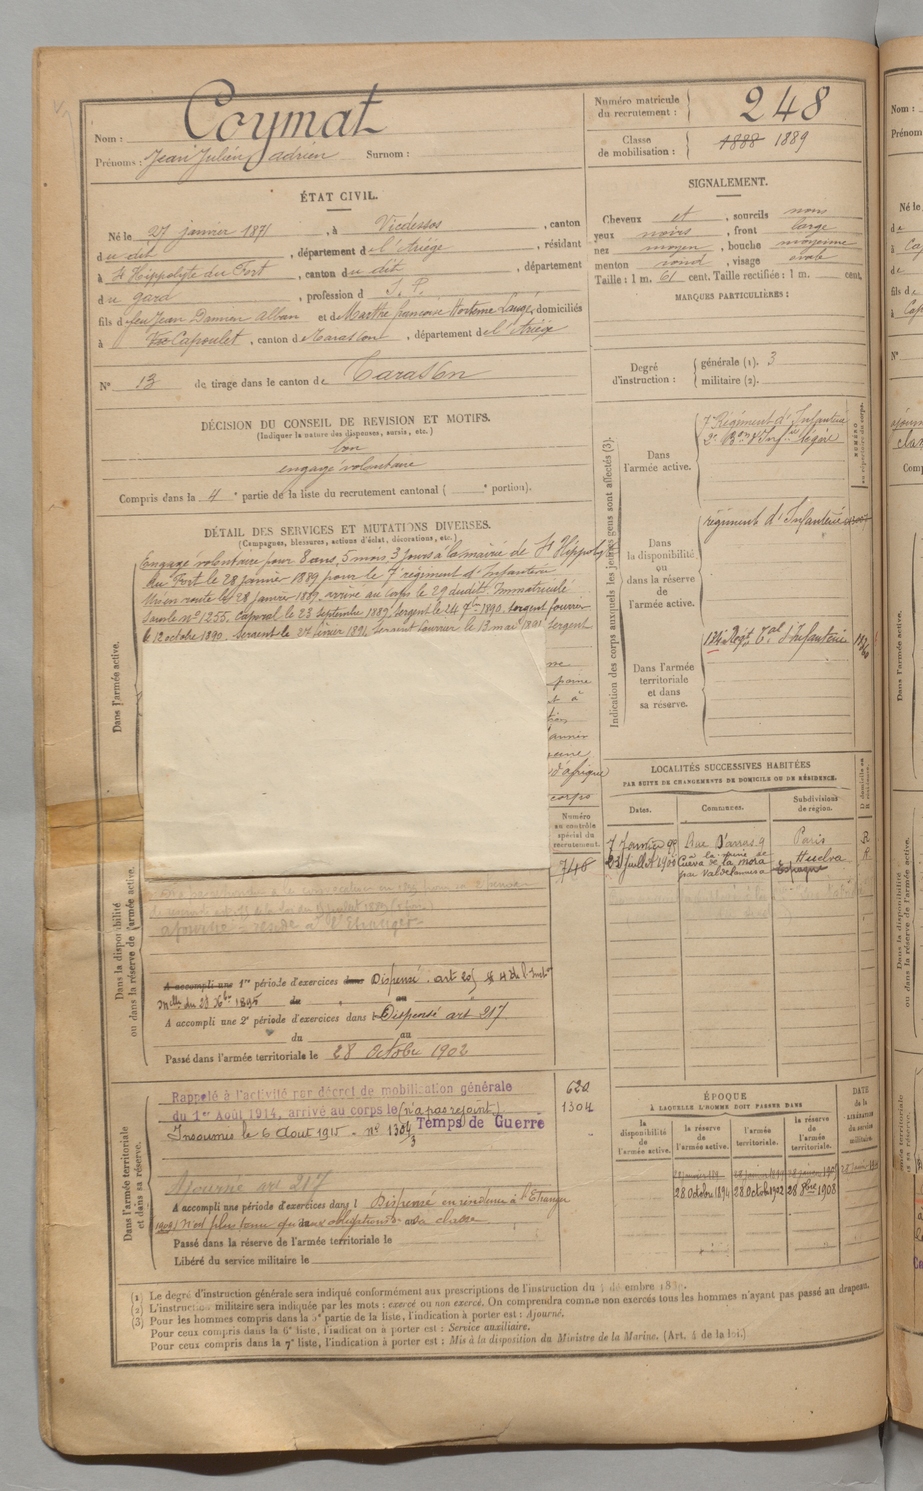 Nom : Coymat
Prénoms : Jean Julien adrien Surnom :
Numéro matricule du recrutement : 248
Classe de mobilisation : 1888 1889
ÉTAT CIVIL.
Né le 27 janvier 1871, à Vicdessos, canton
du dit, département de l'Ariége, résidant
à St Hippolyte du Fort, canton du dit, département
du gard, profession d S. P.
fils de feu Jean Damien Alban et de Marthe françoise Hortense Laugé, domiciliés
à Capoulet, canton de Tarascon, département de l'Ariége
N° 13 de tirage dans le canton de Tarascon
SIGNALEMENT.
Cheveux et, sourcils noirs
yeux noirs, front large
nez moyen, bouche moyenne
menton rond, visage ovale
Taille : 1 m. 61 cent. Taille rectifiée : 1 m. cent.
MARQUES PARTICULIÈRES :
Degré d'instruction : générale (1). 3
militaire (2).
DÉCISION DU CONSEIL DE REVISION ET MOTIFS.
(Indiquer la nature des dispenses, sursis, etc.)
bon
engagé volontaire
Compris dans la 4e partie de la liste du recrutement cantonal ( e portion).
DÉTAIL DES SERVICES ET MUTATIONS DIVERSES.
(Campagnes, blessures, actions d'éclat, décorations, etc.)
Dans l'armée active.
Engagé volontaire pour 8 ans, 5 mois 3 jours à la mairie de St Hippolyte
du Fort le 28 janvier 1889 pour le 7e régiment d'Infanterie
Mis en route le 28 janvier 1889, arrivé au corps le 29 dudit. Immatriculé
sous le n° 1255. Caporal le 23 septembre 1889, Sergent le 24 7bre 1890. Sergent fourrier
le 12 octobre 1890. Sergent le 27 février 1891 Sergent fourrier le 13 mai 1891 Sergent
peine
à
peine
d'afrique
corps
Numéro au contrôle spécial du recrutement.
748
Indication des corps auxquels les jeunes gens sont affectés (3).
NUMÉRO au répertoire du corps.
Dans l'armée active.
7e Régiment d'Infanterie
2e Bon d'Infrie légère
Dans la disponibilité ou dans la réserve de l'armée active.
régiment d'Infanterie
Dans l'armée territoriale et dans sa réserve.
134e Régt Tal d'Infanterie
LOCALITÉS SUCCESSIVES HABITÉES
PAR SUITE DE CHANGEMENTS DE DOMICILE OU DE RÉSIDENCE.
Dates. Communes. Subdivisions de région. D domicile ou R résidence.
7 Janvier 98 Rue D'arras 9 Paris R
21 Juillet 1900 à la mine de Cueva de la mora par Valdelamusa Huelva Espagne R
Dans la disponibilité ou dans la réserve de l'armée active.
ajourné - réside à l'Etranger
A accompli une 1re période d'exercices dans Dispensé. art 20
Melle du 28 Xbre 1895 du au
A accompli une 2e période d'exercices dans l Dispensé art 217
du au
Passé dans l'armée territoriale le 28 Octobre 1902
Dans l'armée territoriale et dans sa réserve.
Rappelé à l'activité par décret de mobilisation générale
du 1er Août 1914, arrivé au corps le (n'a pas rejoint)
Insoumis le 6 Aout 1915 - n° 1304 Temps de Guerre
620
1304
Ajourné art 217
A accompli une période d'exercices dans l Dispensé en résidence à l'Etranger
Passé dans la réserve de l'armée territoriale le
Libéré du service militaire le
ÉPOQUE
À LAQUELLE L'HOMME DOIT PASSER DANS
la disponibilité de l'armée active. la réserve de l'armée active. l'armée territoriale. la réserve de l'armée territoriale. DATE de la LIBÉRATION du service militaire.
28 Octobre 1894 28 Octobre 1902 28 8bre 1908
(1) Le degré d'instruction générale sera indiqué conformément aux prescriptions de l'instruction du
(2) L'instruction militaire sera indiquée par les mots : exercé ou non exercé. On comprendra comme non exercés tous les hommes n'ayant pas passé au drapeau.
(3) Pour les hommes compris dans la 5e partie de la liste, l'indication à porter est : Ajourné.
Pour ceux compris dans la 6e liste, l'indication à porter est : Service auxiliaire.
Pour ceux compris dans la 7e liste, l'indication à porter est : Mis à la disposition du Ministre de la Marine. (Art. 4 de la loi.)